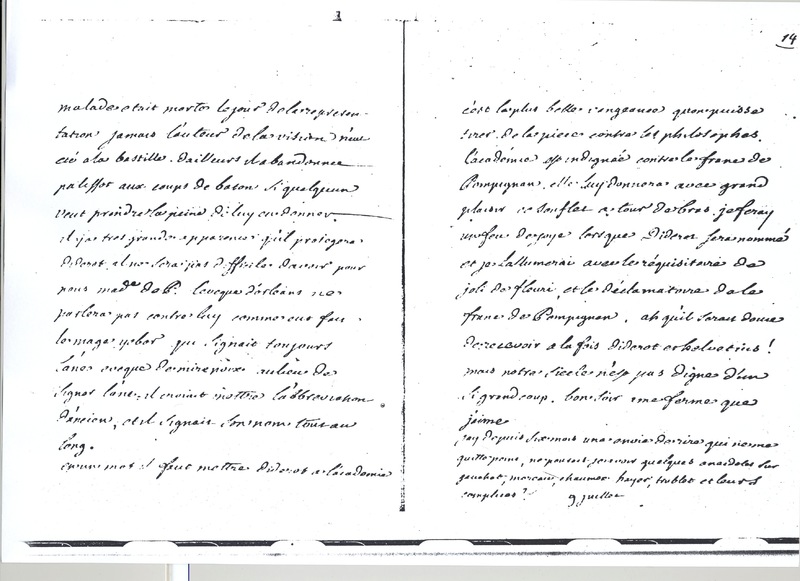 1
malade etait morte le jour de la represen-
tation jamais l'auteur de la vision n'eut
eté a la bastille. d'ailleurs il abandonne
palissot aux coups de baton si quelqu'un
veut prendre la peine de luy en donner
il y a tres grande apparence qu'il protegera
diderot. il ne serait pas difficile d'avoir pour
nous made de P. l'eveque d'orleans ne
parlera pas contre luy comme eut fait
le mage yebor qui signait toujours
l'ane eveque de mirepoix au lieu de
signer l'anc: il croiait mettre l'abbreviation
d'ancien, et il signait son nom tout au
long.
en un mot il faut mettre diderot a l'academie
14
c'est la plus belle vengeance qu'on puisse
tirer de la piece contre les philosophes.
l'academie est indignée contre le franc de
Pompignan. elle luy donnera avec grand
plaisir ce souflet a tour de bras. je feray
un feu de joye lorsque Diderot sera nommé
et je l'allumerai avec le réquisitoire de
joli de fleuri, et le déclamatoire de le
franc de Pompignan. ah qu'il serait doux
de recevoir a la fois diderot et helvetius!
mais notre siecle n'est pas digne d'un
si grand coup. bon soir me ferme que
jaime
jay depuis six mois une envie de rire qui ne me
quitte point, ne pourais je avoir quelques anecdotes sur
gauchat, moreau, chaumex hayer, trublet et leurs
complices? 9 juillet